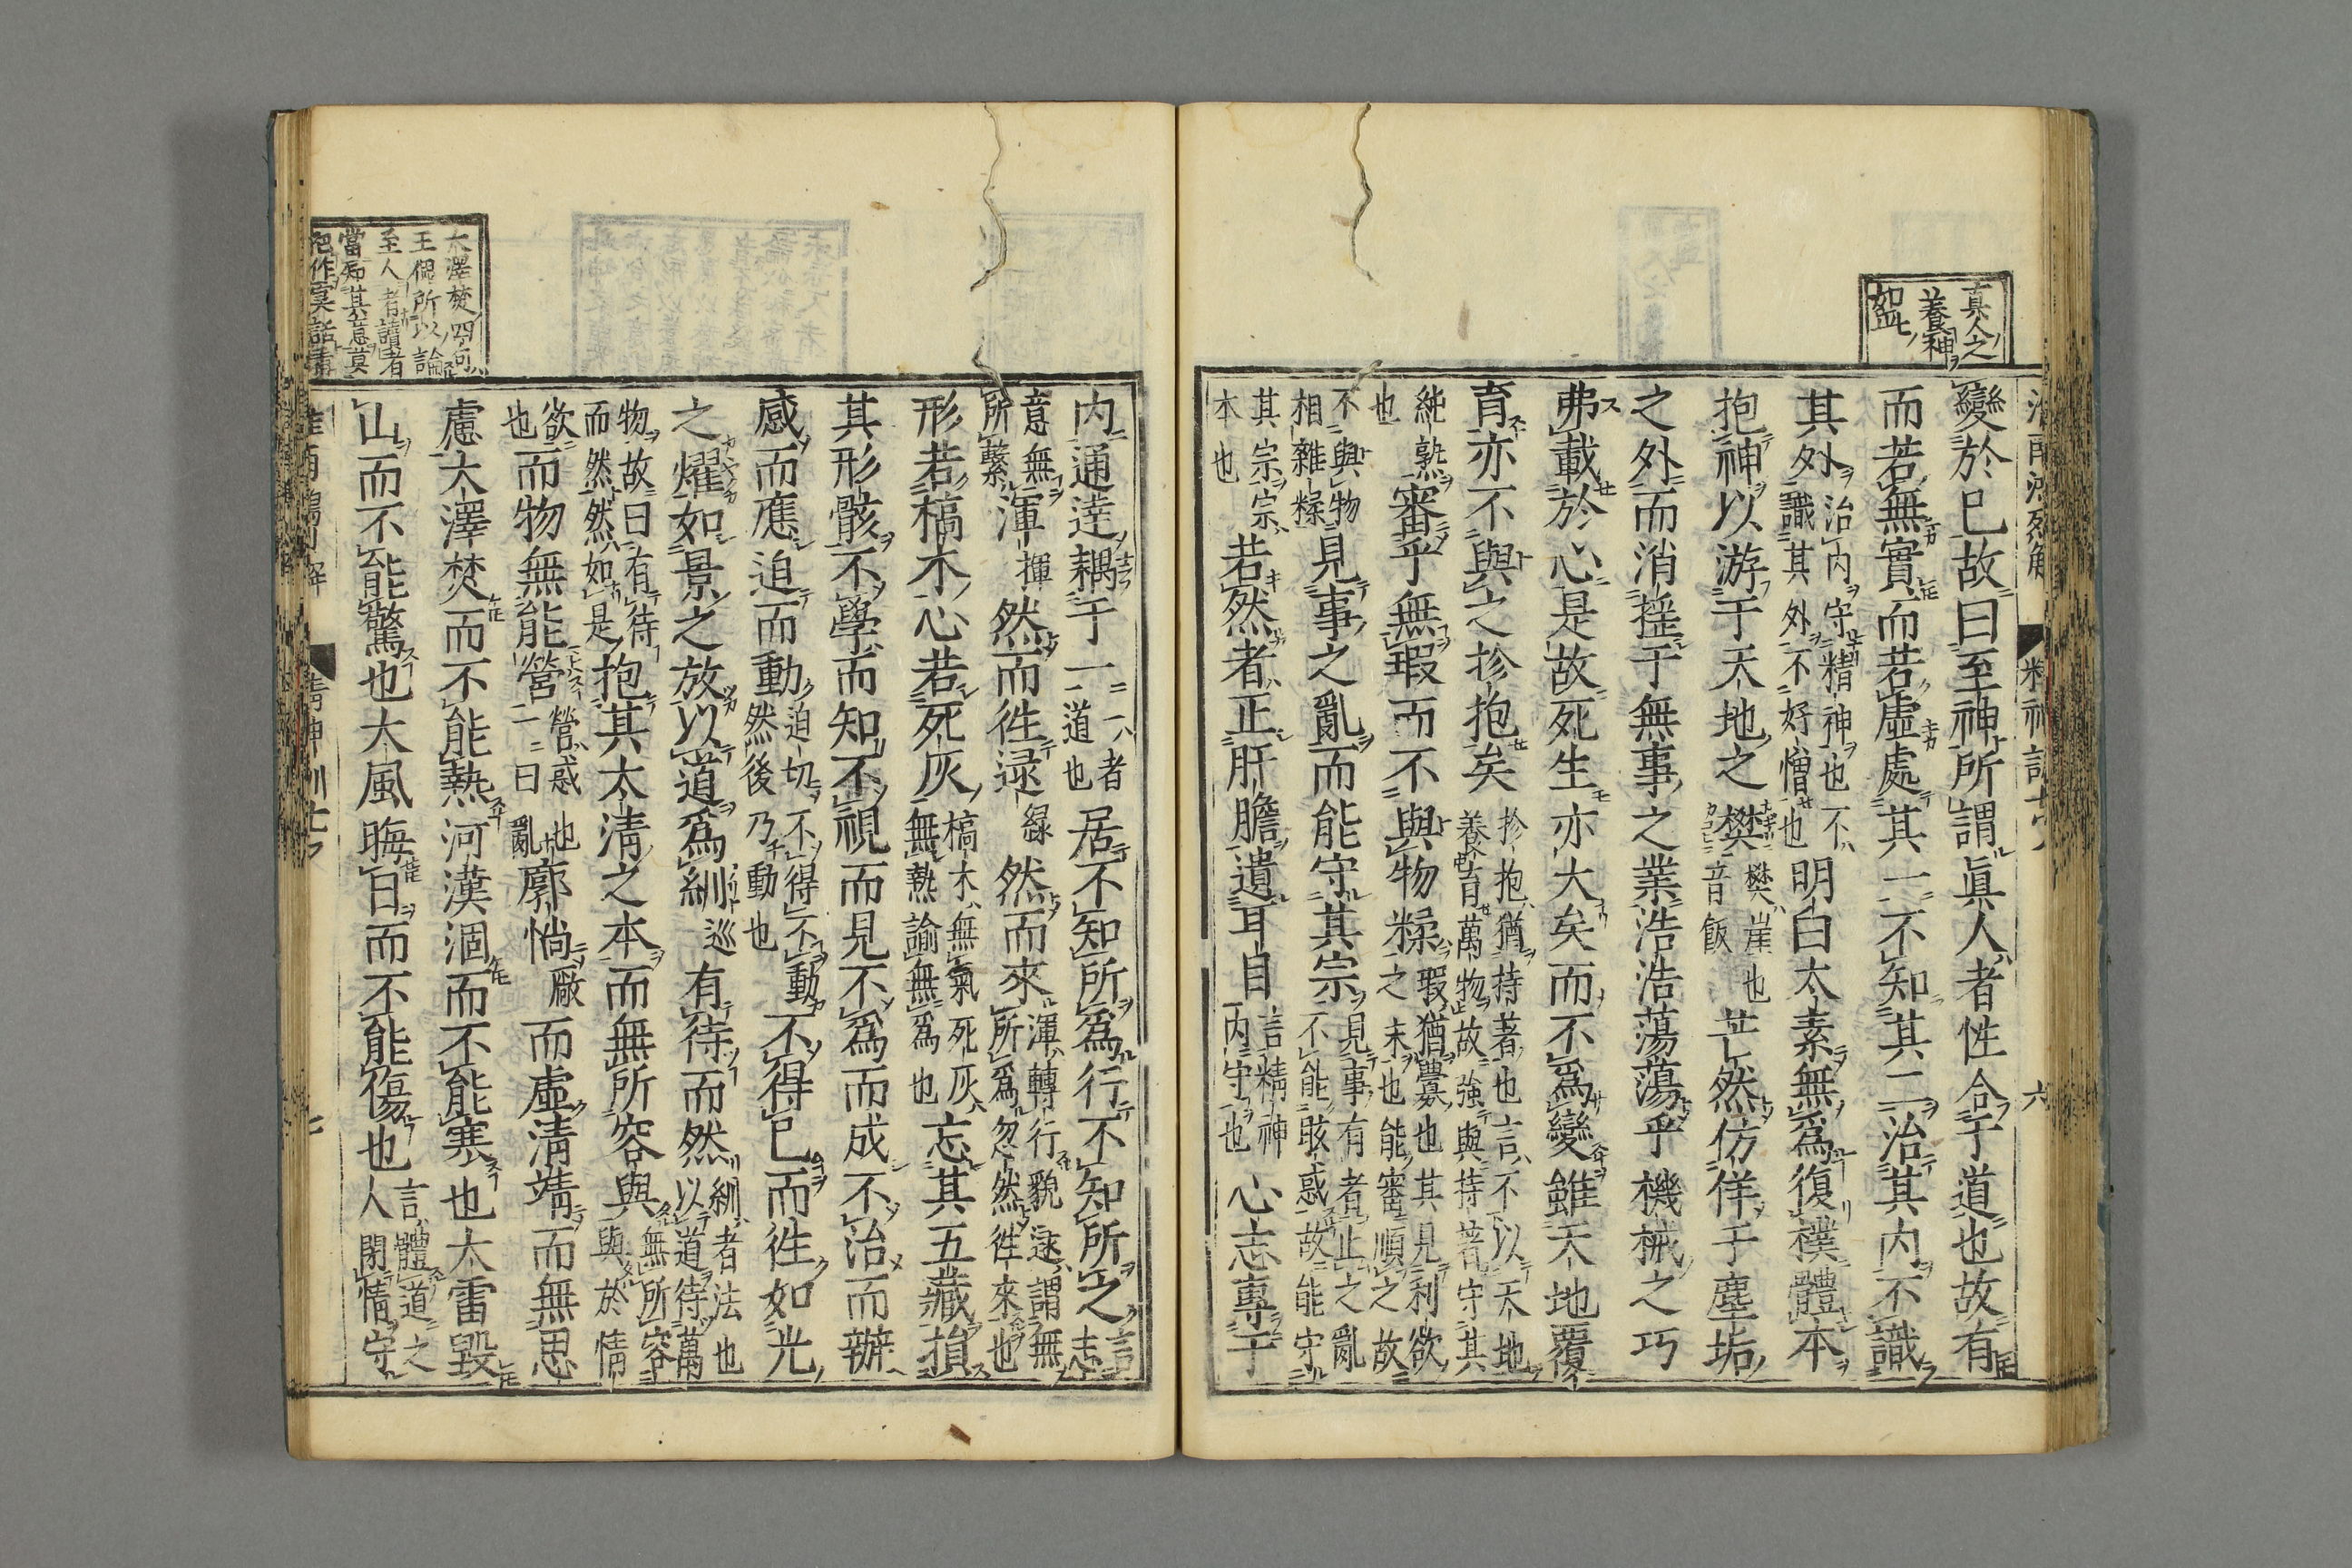 真人之
養神
如此
變於巳故曰至神所謂眞人者性合于道也故有
而若無實而若虛處其一不知其二治其内不識
其外治内守精神也不識其外不好憎也明白太素無爲復樸體本
抱神以游于天地之樊樊崖也音飯芒然仿佯于塵垢
之外而消揺于無事之業浩浩蕩蕩乎機械之巧
弗載於心是故死生亦大矣而不爲變雖天地覆
育亦不與之抮抱矣抮抱猶持著也言不以天地養育萬物故強與持著守其
純熟也審乎無瑕而不與物糅瑕猶釁也其見利欲之末也能審順之故
不與物相雜糅見事之亂而能守其宗見事有者止之亂不能眩惑故能守
其宗宗本也若然者正肝膽遺耳目言精神内守也心志專于
内通達耦于一一者道也居不知所爲行不知所之言志
意無所繫渾揮然而徃逯綠然而來渾轉行貌逯謂無所爲忽然徃來也
形若槁木心若死灰槁木無氣死灰無熱諭無爲也忘其五藏損
其形骸不學而知不視而見不爲而成不治而辦
感而應迫而動迫切不得不動然後乃動也不得巳而徃如光
之燿如景之放以道爲紃巡有待而然紃者法也以道待萬
物故曰有待而然然如是抱其太淸之本而無所容與無所容與於情
欲也而物無能營營惑也一曰亂廓惝廠而虛淸靖而無思
慮大澤焚而不能熱河漢涸而不能寒也大雷毀
山而不能驚也大風晦日而不能傷也言體道之人閉情守
大澤焚四句
王倪所以論
至人者讀者
當知其意莫
精神訓七